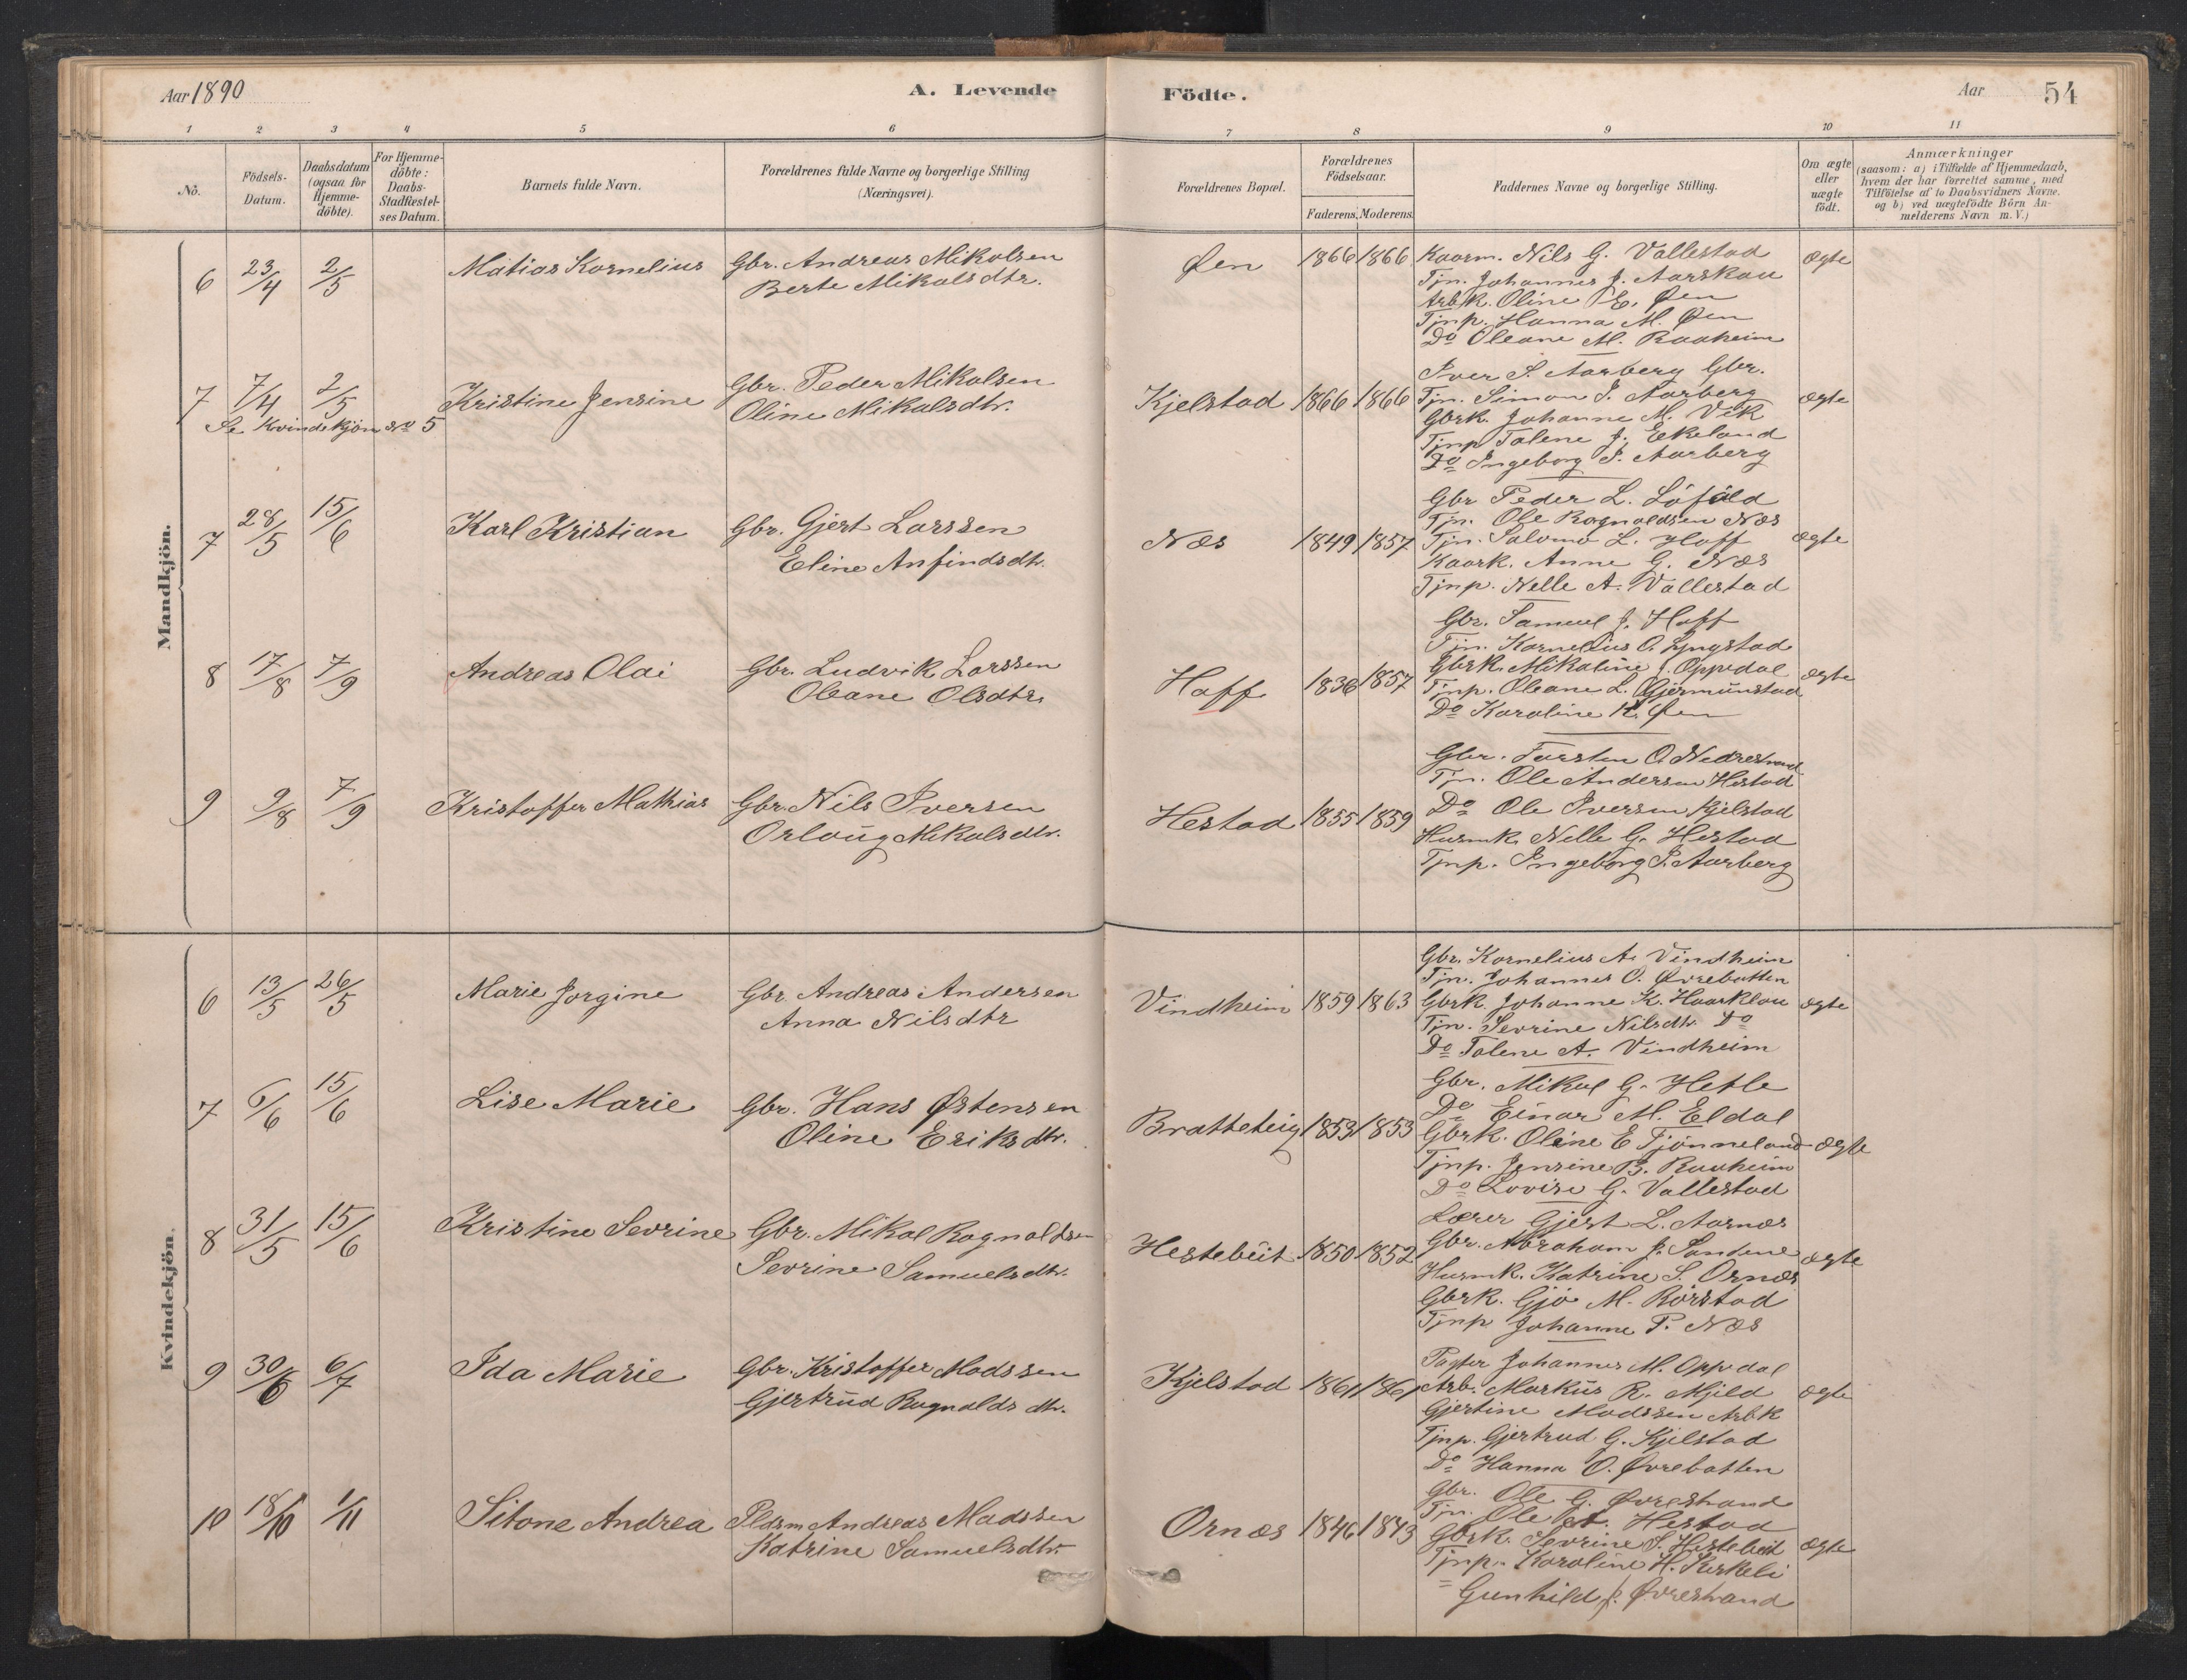 Aar 1890
A. Levende
Födte.
Aar
54
1 2 3 4 5 6 7 8 9 10 11
No.
Födsels-
Datum.
Daabsdatum
(ogsaa for
Hjemme-
döbte).
For Hjemme-
döbte:
Daabs-
Stadfæstel-
ses Datum.
Barnets fulde Navn.
Forældrenes fulde Navne og borgerlige Stilling
(Næringsvei).
Forældrenes Bopæl.
Forældrenes
Födselsaar.
Faderens. Moderens.
Faddernes Navne og borgerlige Stilling.
Om ægte
eller
uægte
födt.
Anmærkninger
(saasom: a) i Tilfælde af Hjemmedaab,
hvem der har forrettet samme, med
Tilföielse af to Daabsvidners Navne,
og b) ved uægtefödte Börn An-
melderens Navn m. V.)
Mandkjön.
6 23/4 2/5 Matias Kornelius Gbr. Andreas Mikalsen
Berte Mikalsdtr.
Øen 1866 1866 Kaarm. Nils G. Vallestad ægte
Tjn. Johannes J. Aarskau
Arbk. Oline E. Øen
Tjnp. Hanna M. Øen
Do Oleane M. Raaheim
7 7/4 2/5 Kristine Jensine Gbr. Peder Mikalsen
Oline Mikalsdtr.
Se Kvindekjøn No 5
Kjelstad 1866 1866
Iver S. Aarberg Gbr.
Tjn. Simon J. Aarberg ægte
Gbrk. Johanne M. Vik
Tjnp Talene J. Ekeland
Do Ingeborg J. Aarberg
7 28/5 15/6 Karl Kristian Gbr. Gjert Larssen
Eline Anfindsdtr.
Næs 1849 1857
Gbr Peder L. Löfald
Tjn. Ole Ragnaldsen Næs
Tjn. Salomo L. Hoff ægte
Kaark. Anne G. Næs
Tjnp. Nelle A. Vallestad
8 17/8 7/9 Andreas Olai Gbr. Ludvik Larssen
Oleane Olsdtr.
Hoff 1836 1857
Gbr. Samuel J. Hoff
Tjn. Kornelius O. Lyngstad
Gbrk. Mikaline J. Oppedal ægte
Tjnp. Oleane L. Gjermunstad
Do Karoline K. Øen
9 9/8 7/9 Kristoffer Mathias Gbr. Nils Iversen
Orloug Mikalsdtr.
Hestad 1855 1859
Gbr. Torsten O. Nedrestrand
Tjn. Ole Andersen Hestad
Do Ole Iversen Kjelstad
Husmk. Nelle G. Hestad
Tjnp. Ingeborg J. Aarberg
Kvindekjön.
6 13/5 26/5 Marie Jorgine Gbr. Andreas Andersen
Anna Nilsdtr
Vindheim 1859 1863
Gbr. Kornelius A. Vindheim
Tjn. Johannes O. Øvrebotten
Gbrk Johanne K. Haarklau ægte
Tjn. Sevrine Nilsdtr. Do
Do Talene A. Vindheim
7 6/6 15/6 Lise Marie Gbr. Hans Østensen
Oline Eriksdtr.
Bratteteig 1853 1853
Gbr. Mikal G. Hetle
Do Einar M. Eldal
Gbrk. Oline E Tjønneland ægte
Tjnp. Jensine B. Raaheim
Do Lovise G. Vallestad
8 31/5 15/6 Kristine Sevrine Gbr. Mikal Ragnaldsen
Sevrine Samuelsdtr.
Hestebeit 1850 1852
Lærer Gjert L. Aarnæs
Gbr. Abraham J. Sandene ægte
Husmk. Katrine S. Ornæs
Gbrk. Gjø M. Rørstad
Tjnp Johanne P. Næs
9 30/6 6/7 Ida Marie Gbr. Kristoffer Madssen
Gjertrud Ragnaldsdtr.
Kjelstad 1861 1861
Pagter Johannes M. Oppedal
Arb. Markus R. Mjeld ægte
Gjertine Madssen Arbk
Tjnp. Gjertrud G. Kjelstad
Do Hanna O. Øvrebotten
10 18/10 1/11 Sitone Andrea Pldsm Andreas Madssen
Katrine Samuelsdtr.
Ornæs 1846 1843
Gbr. Ole G. Øvrestrand
Tjn. Ole A. Hestad
Gbrk. Sevrine S. Hestebeit ægte
Tjnp. Karoline H. Kirkeli
= Gunhild J. Øvrestrand